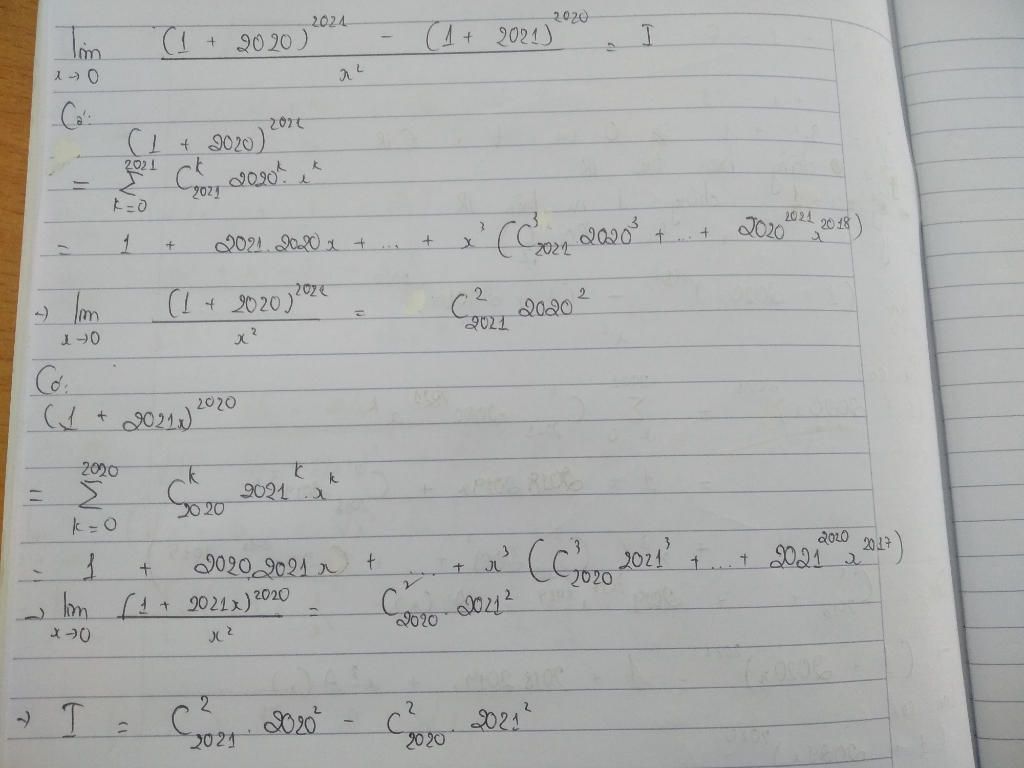 lim x→0 ((1 + 2020)^2021 - (1 + 2021)^2020) / x² = I
Có:
(1 + 2020)^2021
= ∑_{k=0}^{2021} C_{2021}^{k} 2020^k . x^k
= 1 + 2021.2020x + ... + x³ (C_{2021}^{3} 2020³ + ... + 2020^2021 x^2018)
→ lim x→0 (1 + 2020)^2021 / x² = C_{2021}^{2} 2020²
Có:
(1 + 2021x)^2020
= ∑_{k=0}^{2020} C_{2020}^{k} 2021^k . x^k
= 1 + 2020.2021x + ... + x³ (C_{2020}^{3} 2021³ + ... + 2021^2020 x^2017)
→ lim x→0 (1 + 2021x)^2020 / x² = C_{2020}^{2} . 2021²
→ I = C_{2021}^{2} . 2020² - C_{2020}^{2} . 2021²